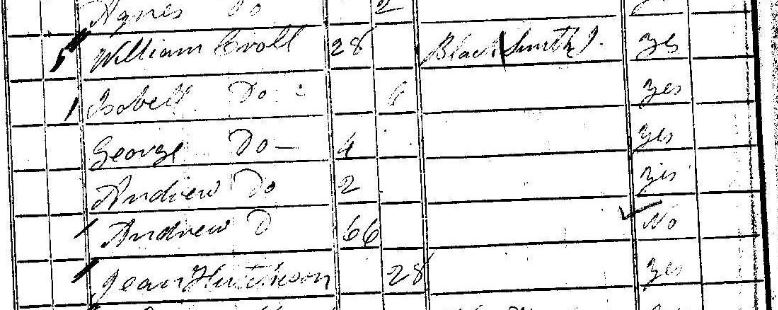 Agnes Do 2
William Croll 28 Black Smith J. Yes
Isobell Do 6 Yes
George Do 4 Yes
Andrew Do 2 Yes
Andrew D 66 No
Jean Hutcheson 28 Yes